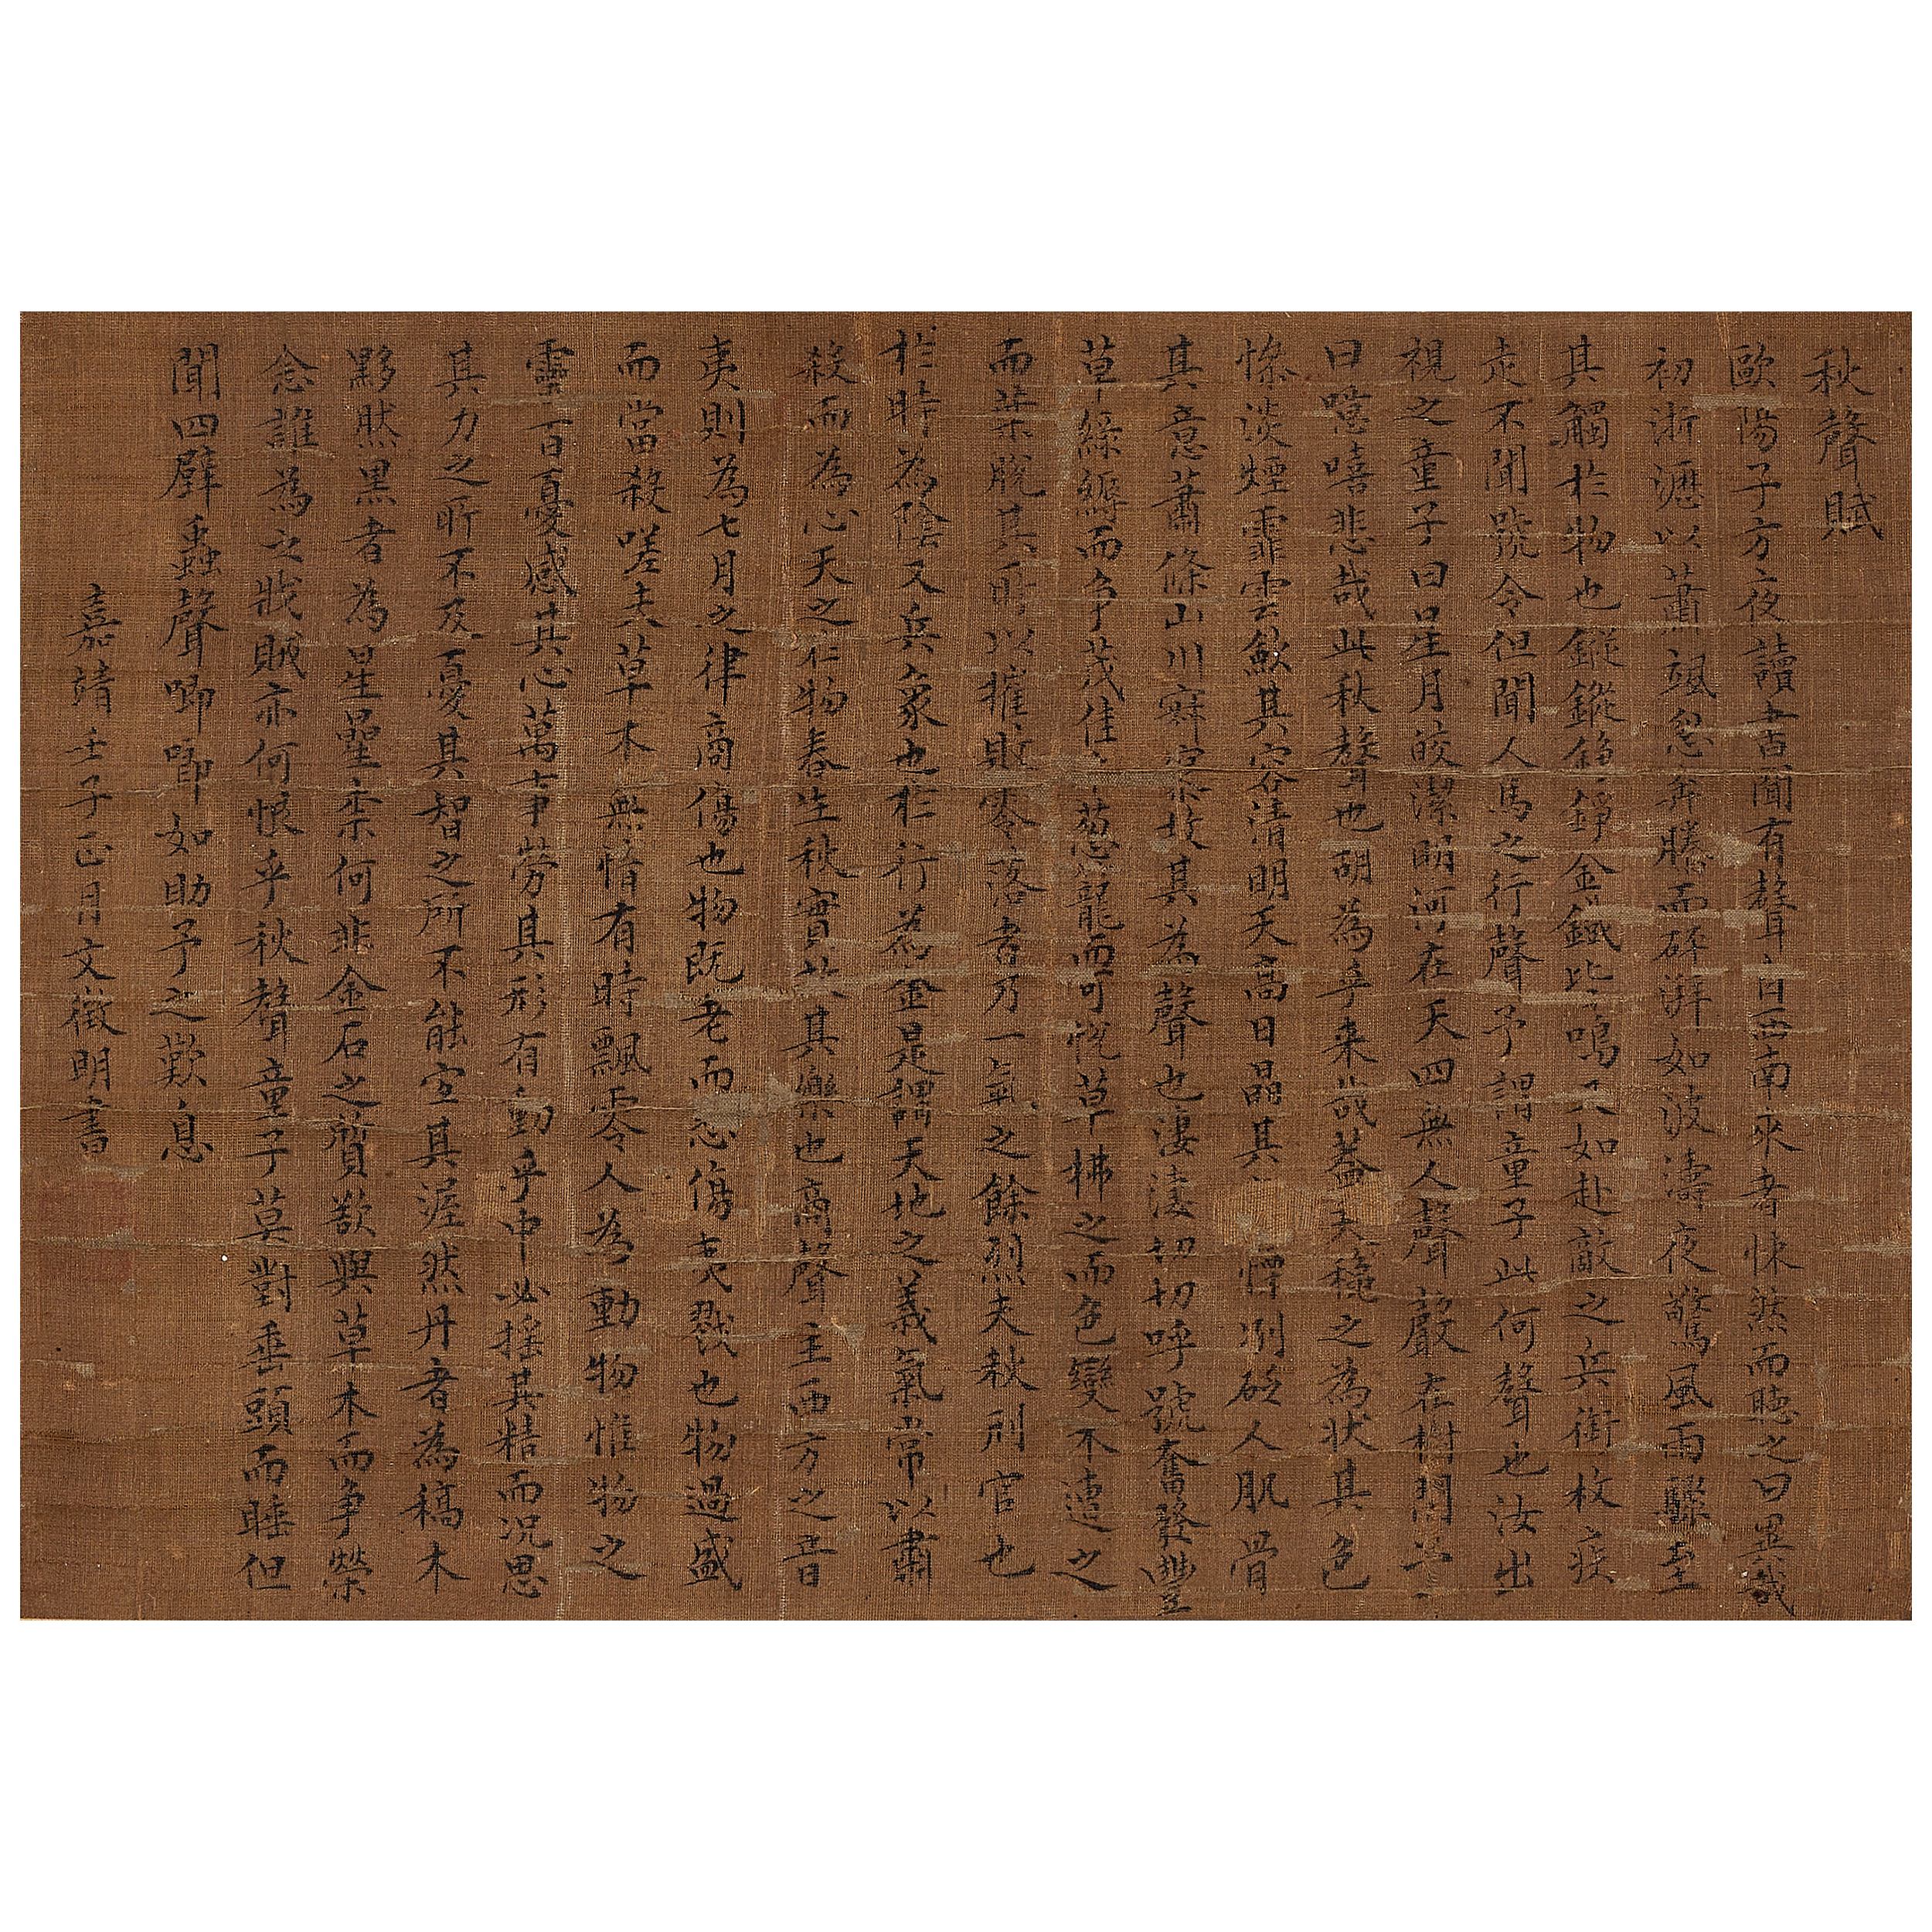 秋聲賦
歐陽子方夜讀書聞有聲自西南來者悚然而聽之曰異哉
初淅瀝以蕭颯忽奔騰而砰湃如波濤夜驚風雨驟至
其觸於物也鏦鏦錚錚金鐵皆鳴又如赴敵之兵銜枚疾
走不聞號令但聞人馬之行聲予謂童子此何聲也汝出
視之童子曰星月皎潔明河在天四無人聲聲在樹間予
曰噫嘻悲哉此秋聲也胡為乎來哉蓋夫秋之為狀其色
慘淡煙霏雲斂其容清明天高日晶其慄冽砭人肌骨
其意蕭條山川寂寥故其為聲也淒淒切切呼號奮發豐
草綠縟而爭茂佳木葱蘢而可悅草拂之而色變木遭之
而葉脫其所以摧敗零落者乃一氣之餘烈夫秋刑官也
於時為陰又兵象也於行為金是謂天地之義氣常以肅
殺而為心天之於物春生秋實故其樂也商聲主西方之音
夷則為七月之律商傷也物既老而悲傷夷戮也物過盛
而當殺嗟夫草木無情有時飄零人為動物惟物之
靈百憂感其心萬事勞其形有動乎中必搖其精而況思
其力之所不及憂其智之所不能宜其渥然丹者為槁木
黟然黑者為星星柰何非金石之質欲與草木而爭榮
念誰為之戕賊亦何恨乎秋聲童子莫對垂頭而睡但
聞四壁蟲聲唧唧如助予之歎息
嘉靖壬子正月文徵明書